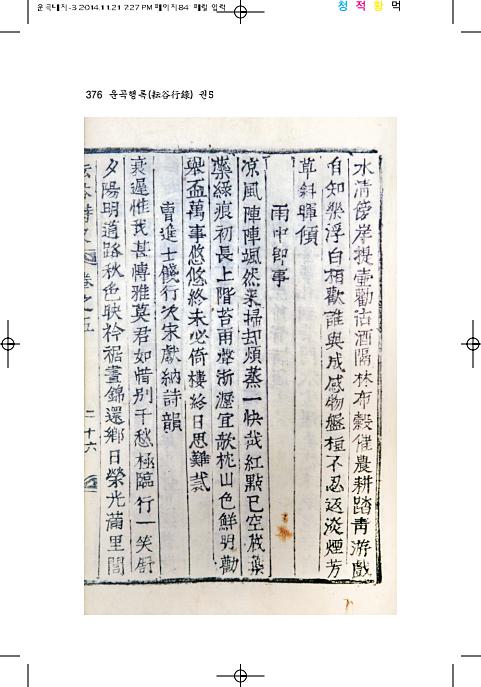 운곡내지-3 2014.11.21 7:27 PM 페이지84 매킬 입력
청 적 황 먹
376 운곡행록(耘谷行錄) 권5
水清傍岸提壺勸沽酒隔林布穀催農耕踏青游戲
自知幾浮白相歡誰與成感物盤桓不忍返淡煙芳
草斜暉傾
雨中即事
凉風陣陣颯然來掃却煩蒸一快哉紅點已空蔵藥
綠痕初長上階苔雨聲浙瀝宜欹枕山色鮮明勸
擧盃萬事悠悠終未必倚樓終日思難裁
曹進士餞行次宋獻納詩韻
衰遲惟我甚博雅莫君如惜別千愁極臨行一笑舒
夕陽明道路秋色映衿裾晝錦還鄉日榮光滿里閭
卷之五
二十六